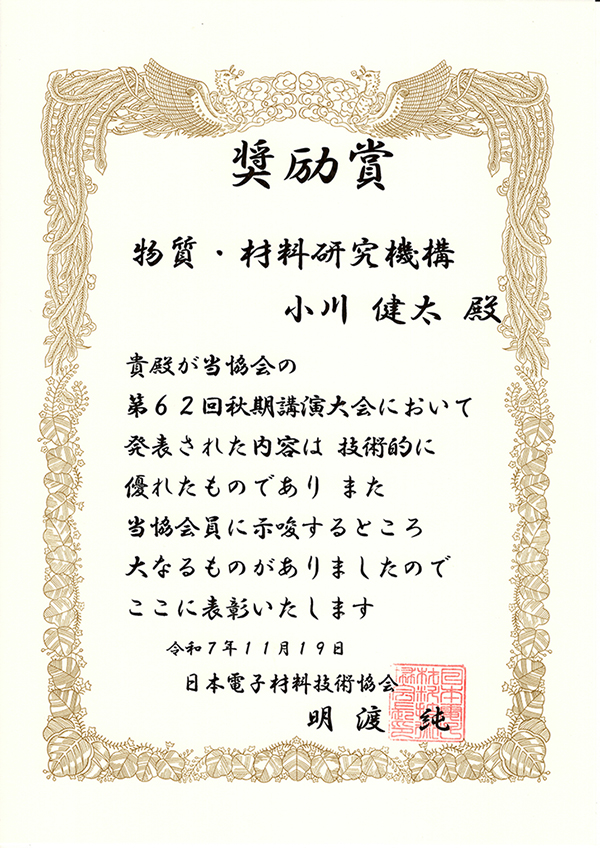 奨励賞
物質・材料研究機構
小川 健太 殿
貴殿が当協会の
第62回秋期講演大会において
発表された内容は 技術的に
優れたものであり また
当協会員に示唆するところ
大なるものがありましたので
ここに表彰いたします
令和7年11月19日
日本電子材料技術協会
明渡 純